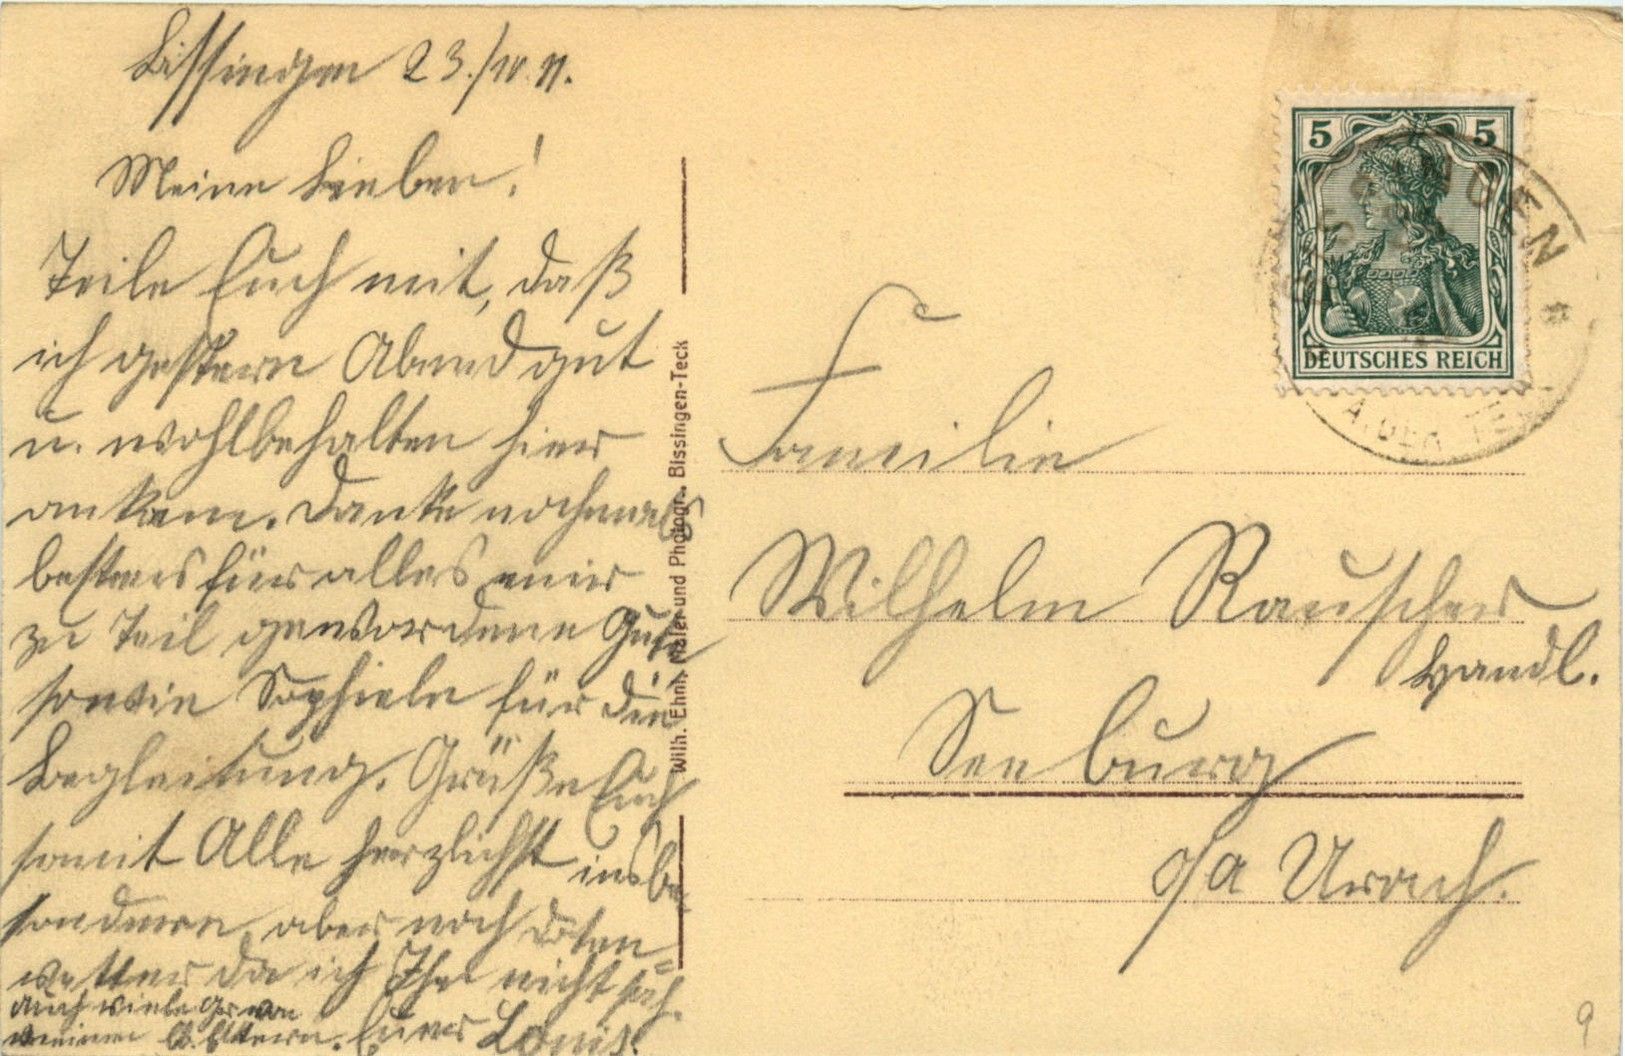 Bissingen 23./10. 11.
Meine Lieben!
Teile Euch mit, daß
ich gestern Abend gut
u. wohlbehalten hier
ankam. Danke nochmals
bestens für alles mir
zu Teil gewordene Gute
sowie Sophiele für die
Begleitung. Grüße Euch
somit Alle herzlichst insbe
sondere, aber noch
vetter da ich Ihn nicht sah.
auch viele Gr von
meinen lb. Eltern. Euer Louis.
Wilh. Ehni, Maler und Photogr., Bissingen-Teck
5 5
DEUTSCHES REICH
BISSINGEN
A. DER TECK
Familie
Wilhelm Rauscher
Handl.
Seeburg
o/a Urach.
9